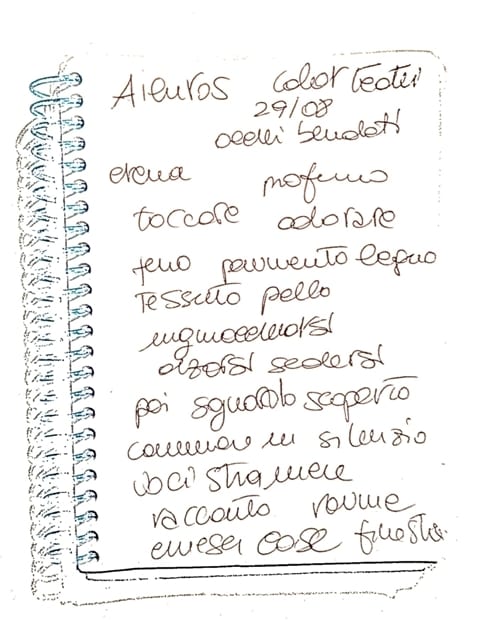 Aieuros color teatri
29/08
occhi bendati
erena profumo
toccare odorare
feno pavimento legno
tessuto pello
inginocchiarsi
alzarsi sedersi
poi sguardo scoperto
camminare in silenzio
voci straniere
racconto rovine
case finestre